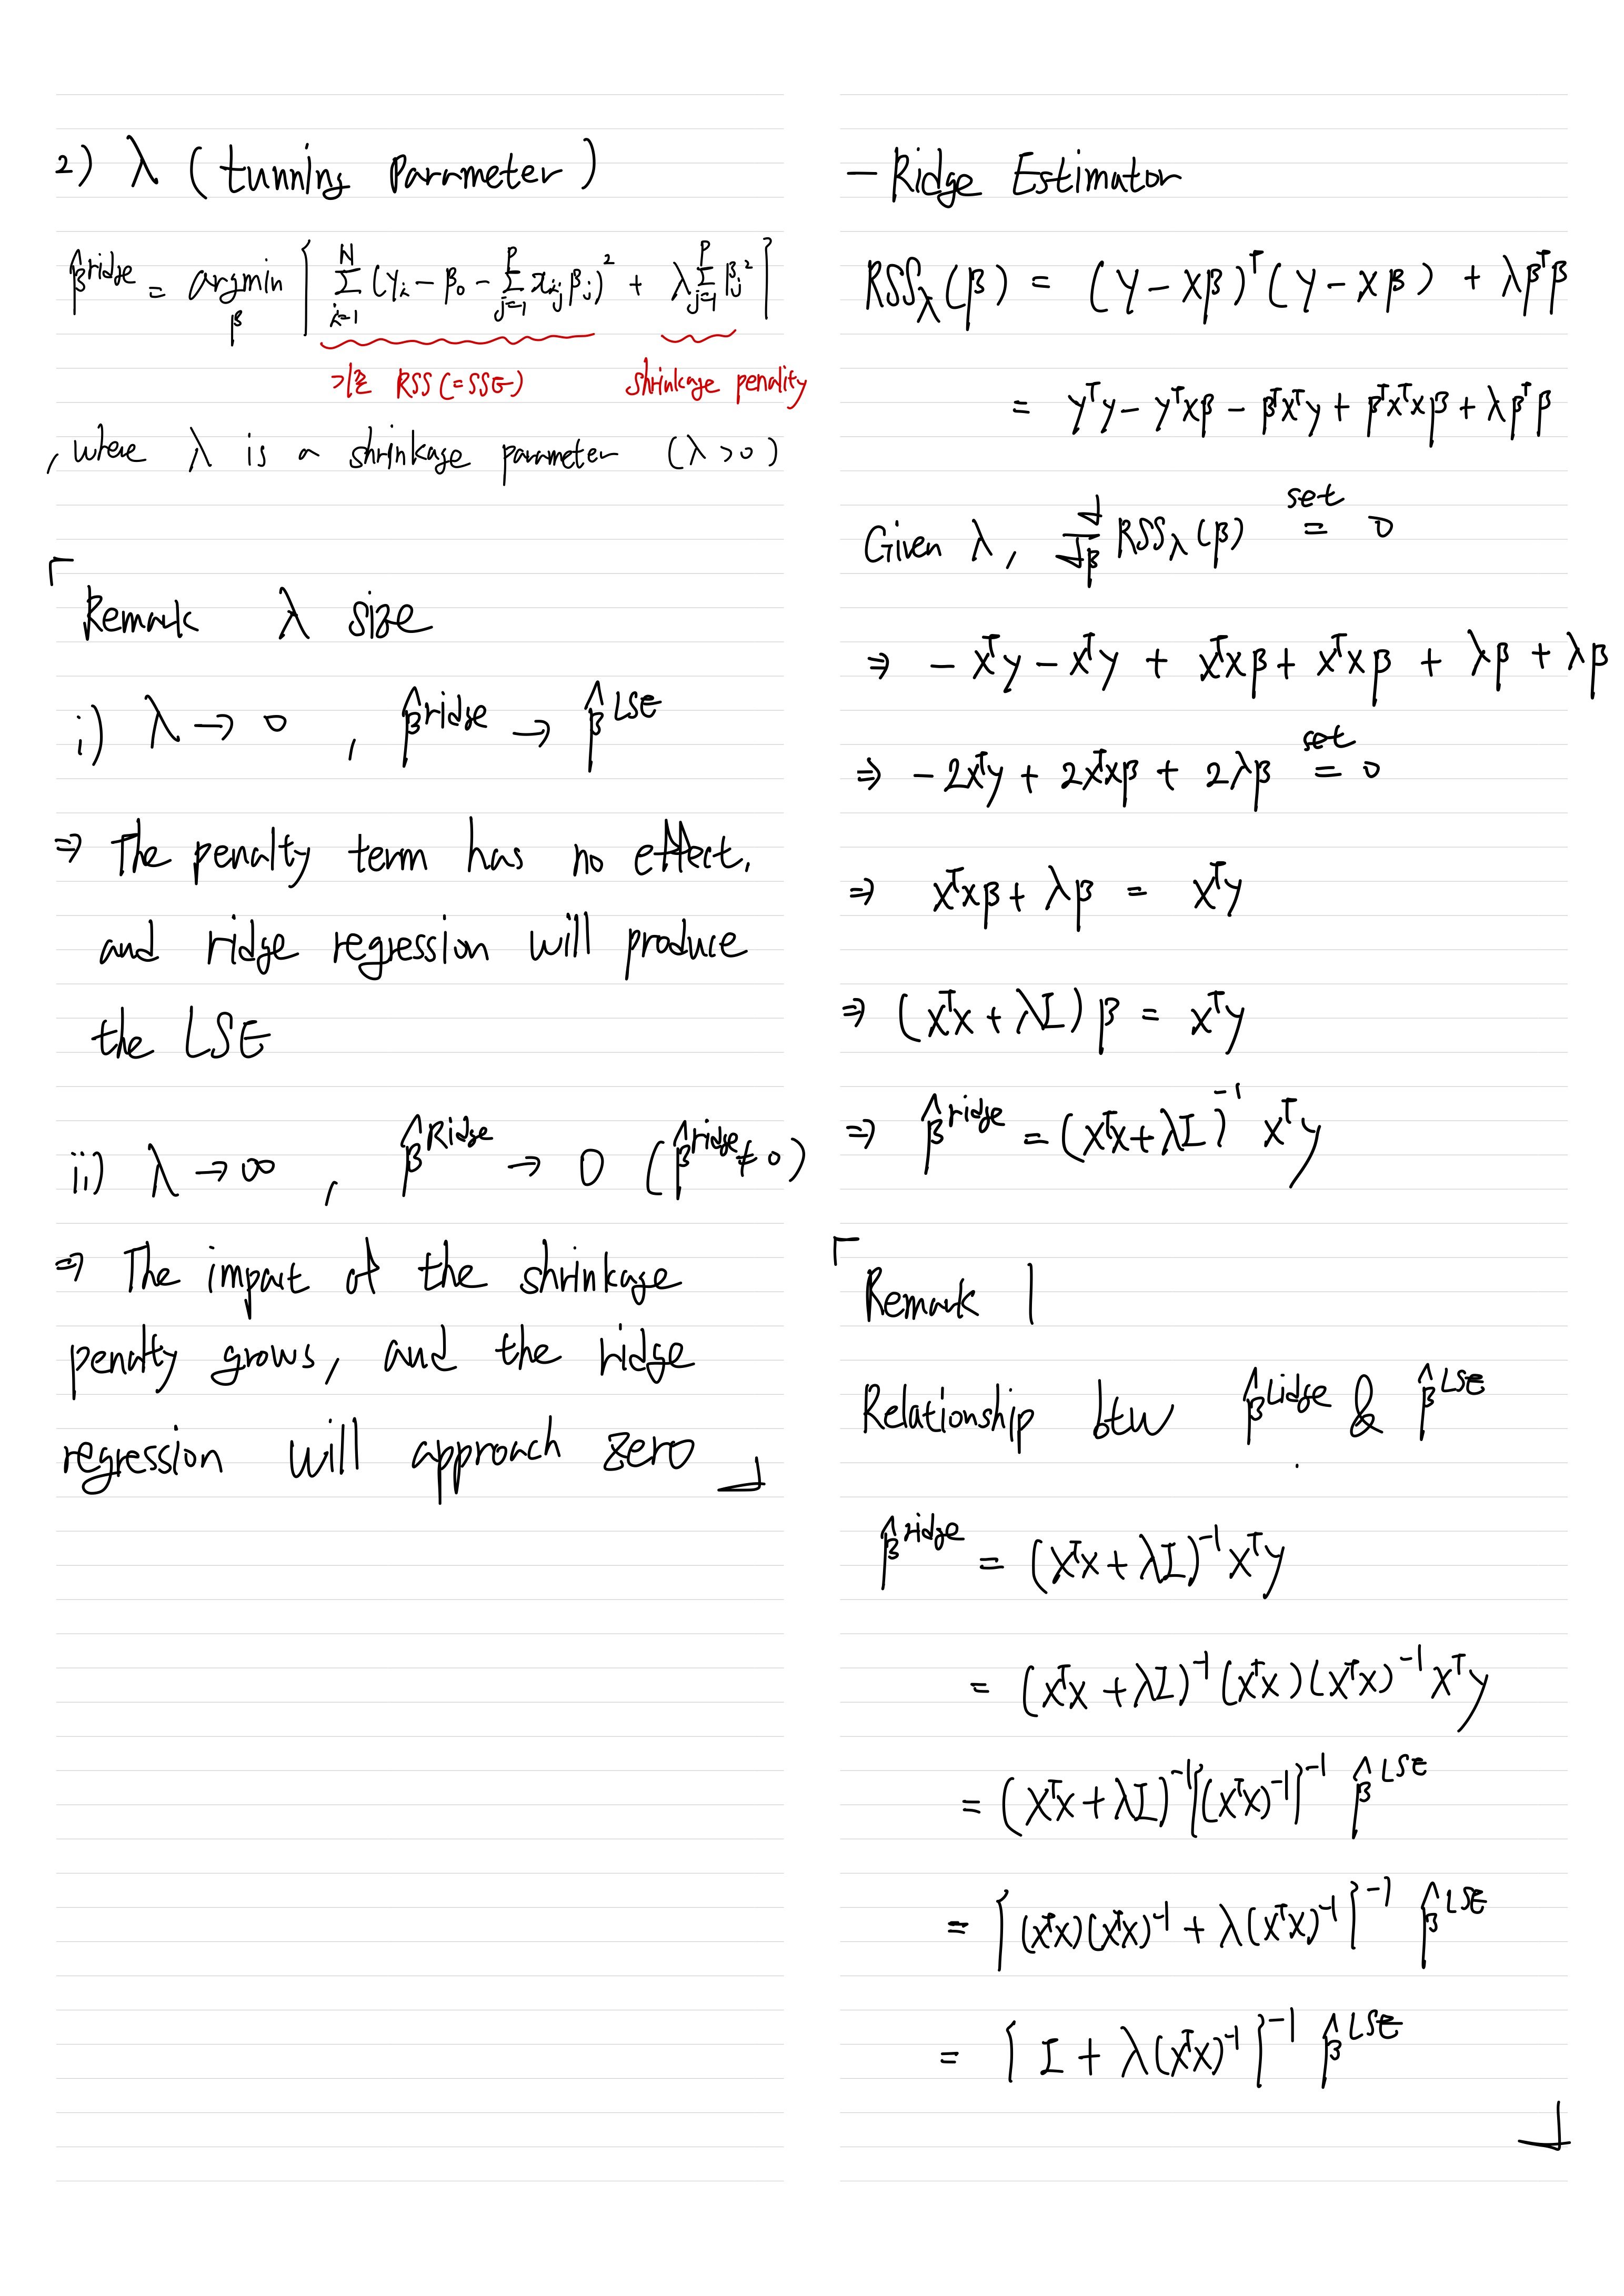 2) λ (tunning Parameter)
β̂^ridge = argmin_β { Σ_{i=1}^{N} (y_i - β_0 - Σ_{j=1}^{p} x_ij β_j)² + λ Σ_{j=1}^{p} β_j² }
기존 RSS (=SSE) shrinkage penality
, where λ is a shrinkage parameter (λ>0)
「Remark λ size
i) λ → 0 , β̂^ridge → β̂^LSE
⇒ The penalty term has no effect,
and ridge regression will produce
the LSE
ii) λ → ∞ , β̂^Ridge → 0 (β̂^ridge ≠ 0)
⇒ The impact of the shrinkage
penalty grows, and the ridge
regression will approach zero 」
- Ridge Estimator
RSS_λ(β) = (y - Xβ)^T (y - Xβ) + λβ^Tβ
= y^Ty - y^TXβ - β^TX^Ty + β^TX^TXβ + λβ^Tβ
Given λ, d/dβ RSS_λ(β) set = 0
⇒ - X^Ty - X^Ty + X^TXβ + X^TXβ + λβ + λβ
⇒ - 2X^Ty + 2X^TXβ + 2λβ set = 0
⇒ X^TXβ + λβ = X^Ty
⇒ (X^TX + λI)β = X^Ty
⇒ β̂^ridge = (X^TX + λI)^-1 X^Ty
「Remark 1
Relationship btw β̂^ridge & β̂^LSE
β̂^ridge = (X^TX + λI)^-1 X^Ty
= (X^TX + λI)^-1 (X^TX)(X^TX)^-1 X^Ty
= (X^TX + λI)^-1 {(X^TX)^-1}^-1 β̂^LSE
= {(X^TX)(X^TX)^-1 + λ(X^TX)^-1}^-1 β̂^LSE
= {I + λ(X^TX)^-1}^-1 β̂^LSE
」